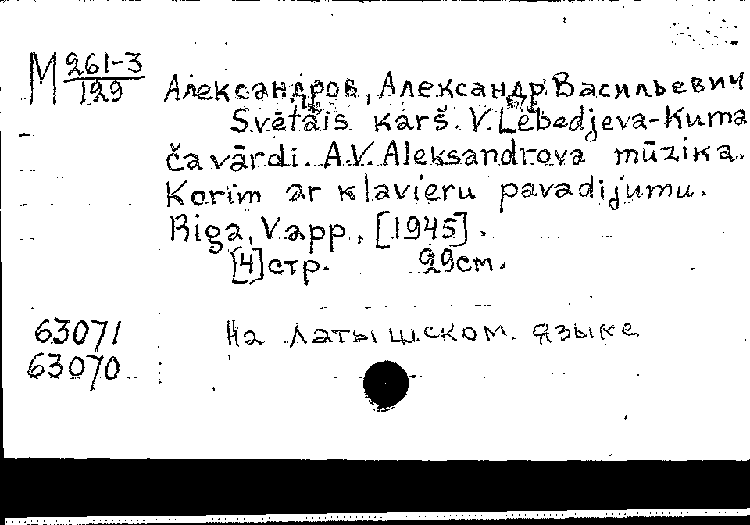 М 261-3
129
Александров, Александр Васильевич
Svētais karš. V. Lebedjeva-Kuma
ča vārdi. A.V. Aleksandrova mūzika.
Korim ar klavieru pavadijumu.
Riga, Vapp, [1945].
[4] стр. 29 см.
63071 На латышском языке
63070